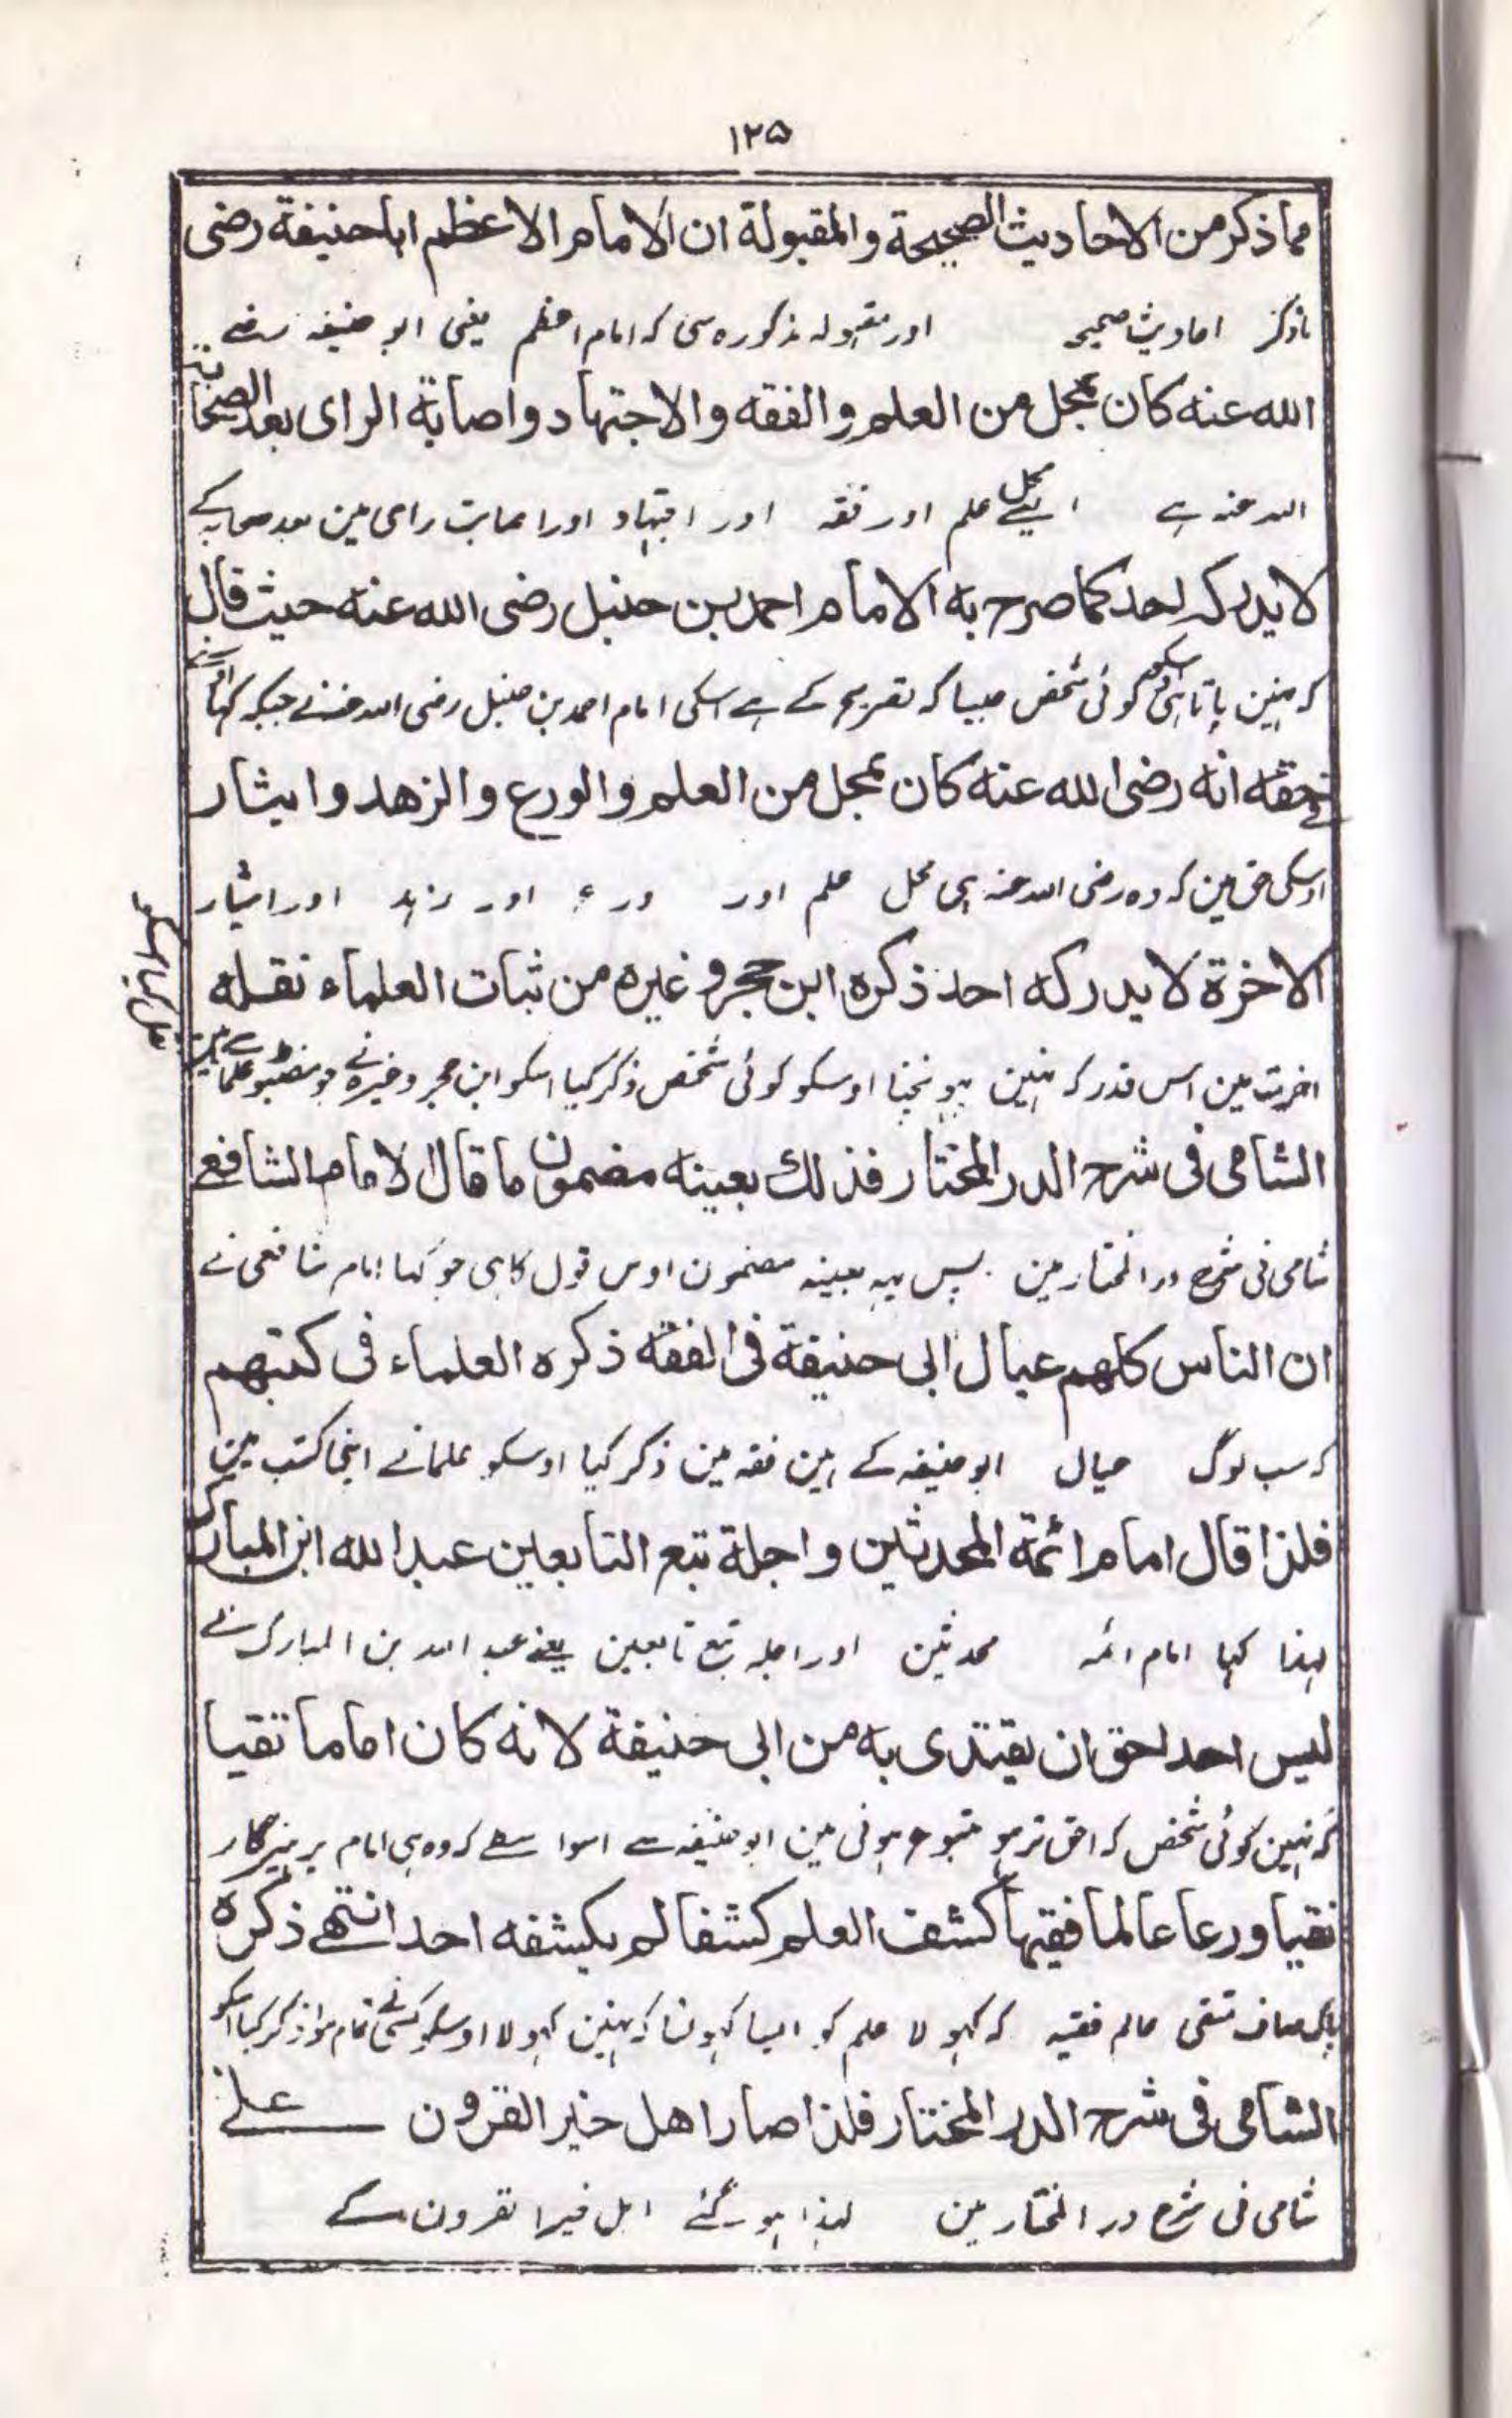 ۱۲۵
مما ذكر من الاحاديث الصحيحة والمقبولة ان الامام الاعظم ابا حنيفة رضى
احادیث صحیحہ اور مقبولہ مذکورہ سی کہ امام اعظم یعنی ابو حنیفہ رضے
الله عنه كان بمحل من العلم والفقه والاجتهاد واصابة الراى بعد الصحابة
اللہ عنہ ہے ایسے محل علم اور فقہ اور اجتہاد اور اصابت رای مین بعد صحابہ کے
لا يدركه احد كما صرح به الامام احمد بن حنبل رضى الله عنه حيث قال
کہ نہین پاتا ہی اسکو کوئی شخص جیسا کہ تصریح کے ہے اسکی امام احمد بن حنبل رضی اللہ عنہ نے جبکہ کہا
فے حقه انه رضى الله عنه كان بمحل من العلم والورع والزهد وايثار
اوسکی حق مین کہ وہ رضی اللہ عنہ ہی محل علم اور ورع اور زہد اور ایثار
الاخرة لا يدركه احد ذكره ابن حجر وغيره من ثبات العلماء نقله
اخرت مین اس قدر کہ نہین پہونچتا اوسکو کوئی شخص ذکر کیا اسکو ابن حجر وغیرہ نے جو مضبوط علما مین سے
نقل کیا اسکو
الشامى فى شرح الدر المختار فذلك بعينه مضمون ما قال الامام الشافعے
شامی نی شرح در المختار مین پس یہہ بعینہ مضمون اوس قول کا ہی جو کہا امام شافعی نے
ان الناس كلهم عيال ابى حنيفة فى الفقه ذكره العلماء فى كتبهم
کہ سب لوگ عیال ابو حنیفہ کے ہین فقہ مین ذکر کیا اوسکو علما نے اپنی کتب مین
فلذا قال امام ائمة المحدثين واجلة تبع التابعين عبد الله ابن المبارك
لہذا کہا امام ائمہ محدثین اور اجلہ تبع تابعین یعنے عبد اللہ بن المبارک نے
ليس احد احق ان يقتدى به من ابى حنيفة لانه كان اماما تقيا
کہ نہین کوئی شخص کہ احق تر ہو متبوع ہونی مین ابو حنیفہ سے اسواسطے کہ وہ ہی امام پرہیزگار
نقيا ورعا عالما فقيها كشف العلم كشفا لم يكشفه احد انتهے ذكره
پاک صاف متقی عالم فقیہ کہ کہولا علم کو ایسا کہولنا کہ نہین کہولا اوسکو کسی نے تمام ہوا ذکر کیا اسکو
الشامى فى شرح الدر المختار فلذا صار اهل خير القرون علے
شامی نی شرح در المختار مین لہذا ہو گئے اہل خیر القرون کے